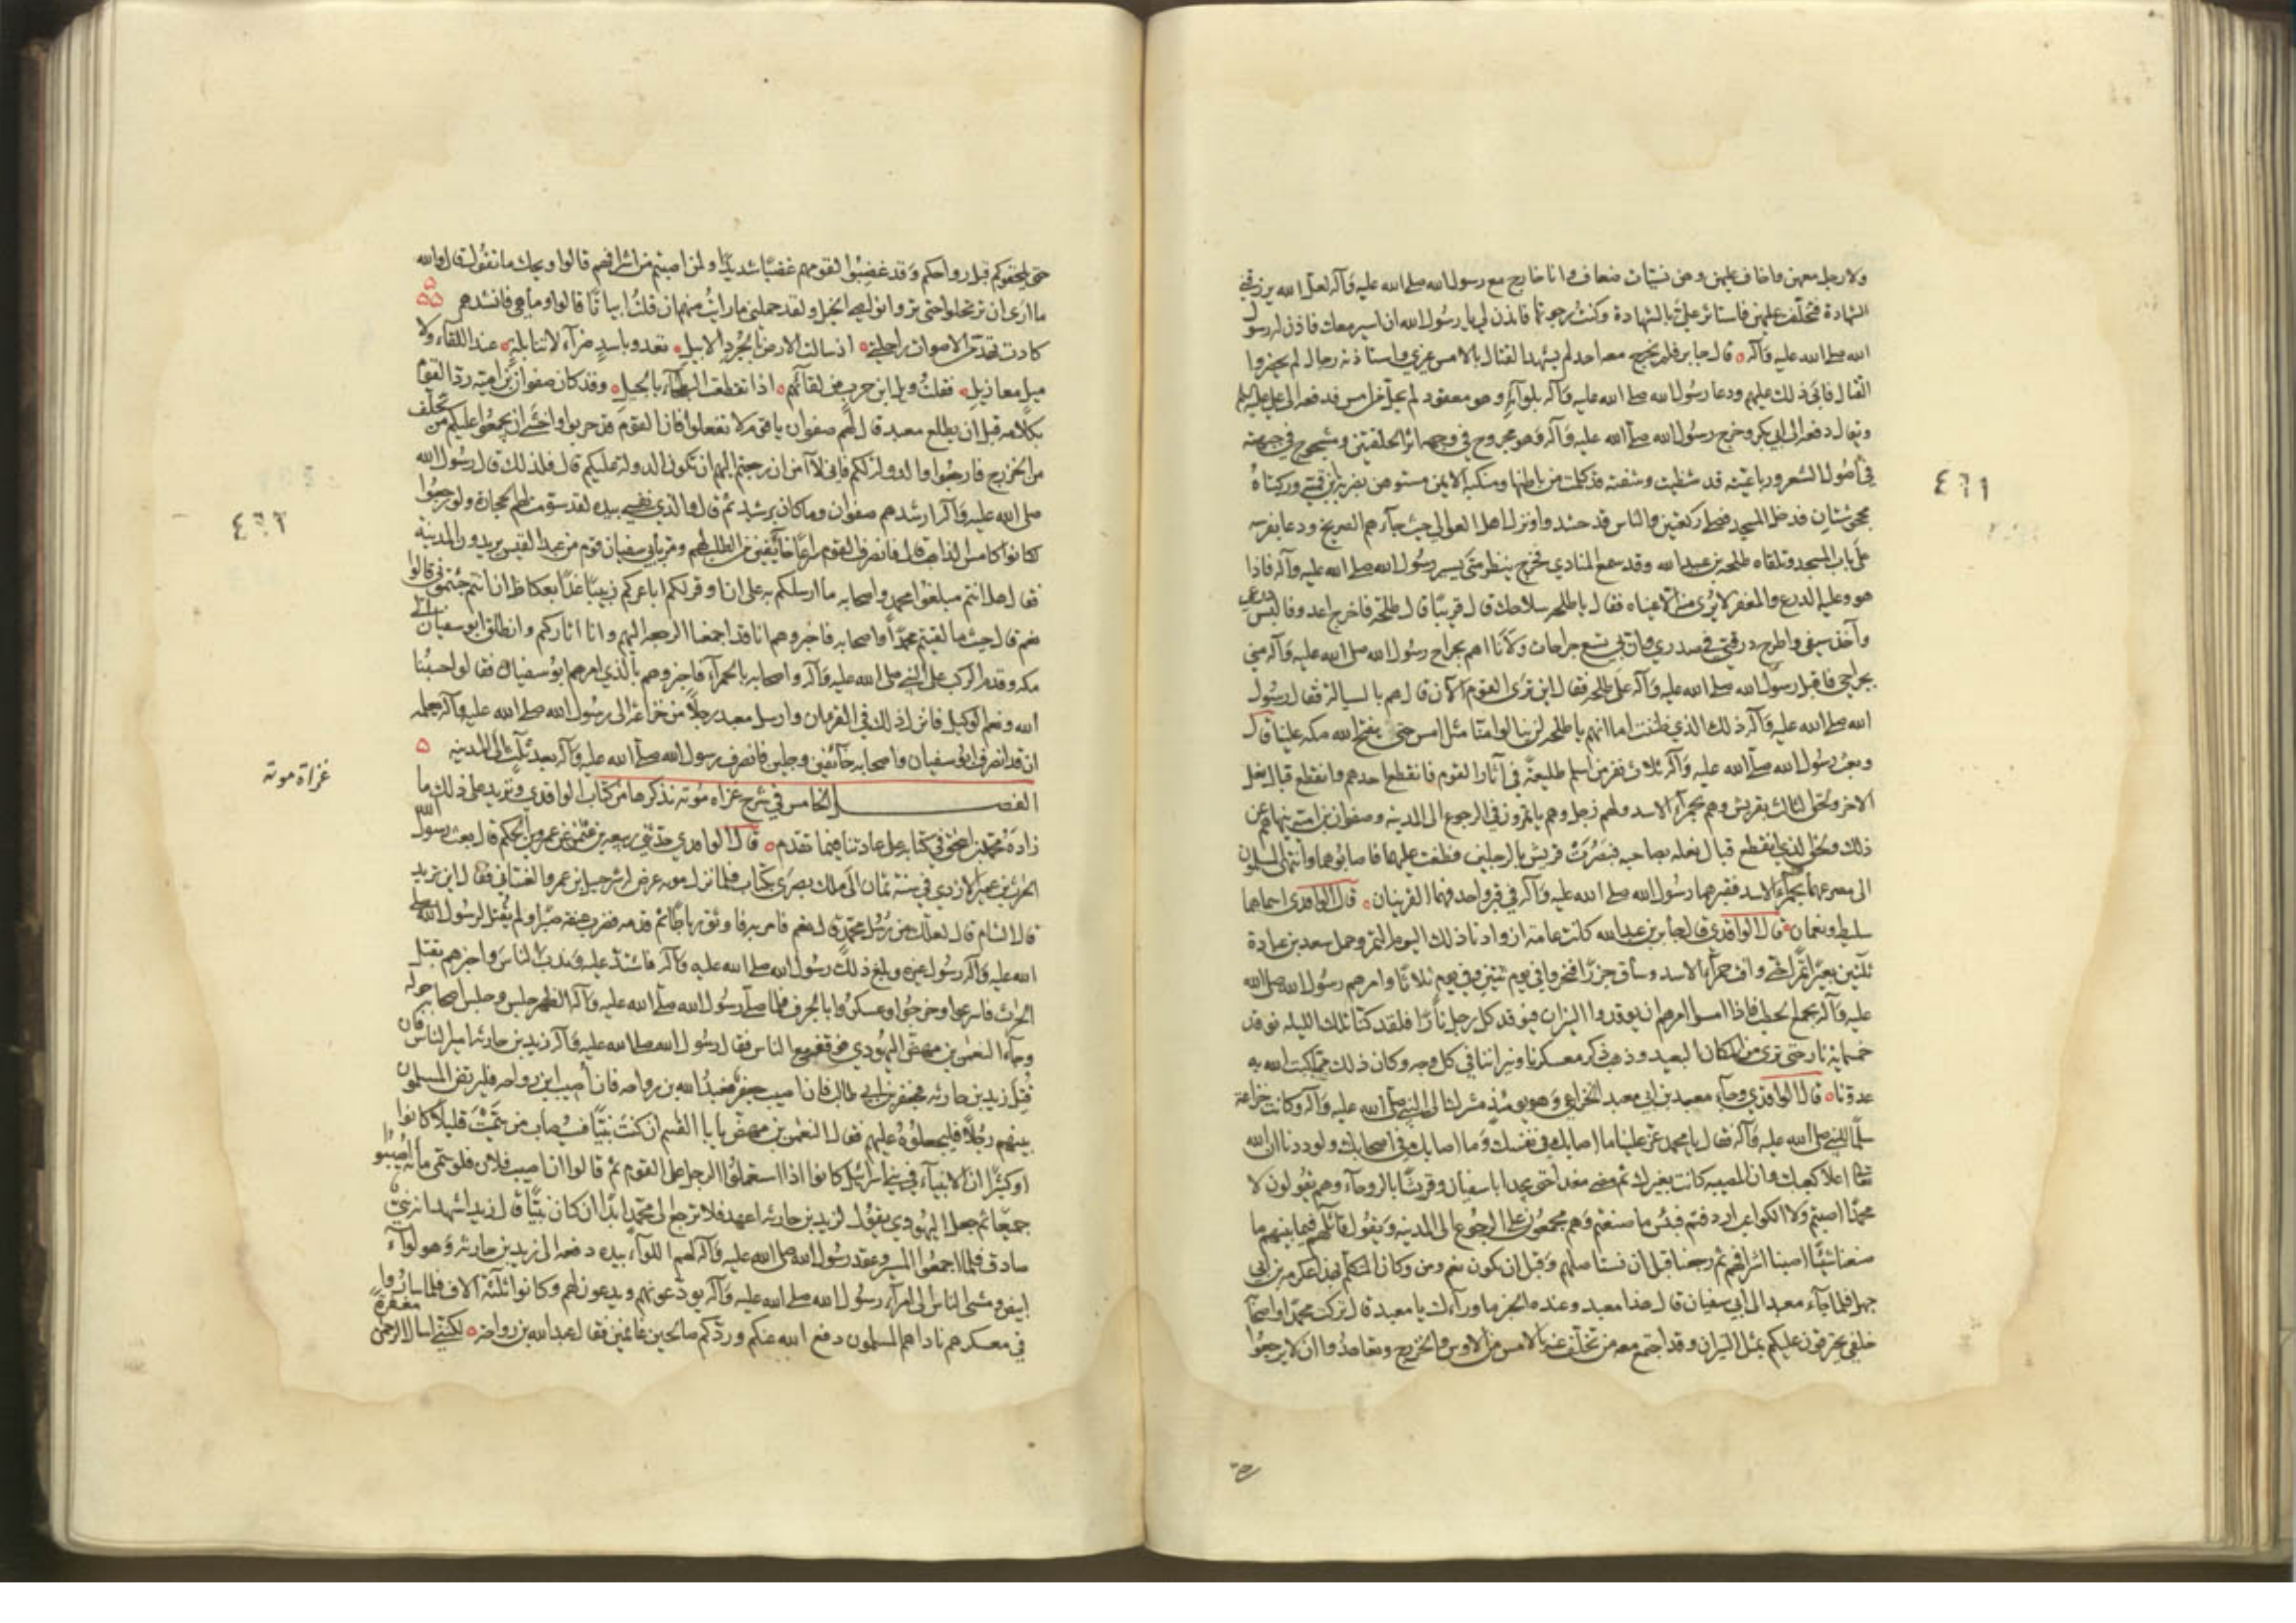 ولا رجل معهن واخاف عليهن وهن نسيات ضعاف وانا خارج مع رسول الله صلى الله عليه وآله لعل الله يرزقني
الشهادة فتخلفت عليهن فاستاثر علي بالشهادة وكنت رجوتها فاذن لي يا رسول الله ان اسير معك فاذن له رسول
الله صلى الله عليه وآله قال جابر فلم يخرج معه احد لم يشهد القتال بالامس غيري واستاذنه رجال لم يحضروا
القتال فابى ذلك عليهم ودعا رسول الله صلى الله عليه وآله بلوائه وهو معقود لم يحل من امس فدفعه الى علي عليه السلم
ويقال دفعه الى ابي بكر وخرج رسول الله صلى الله عليه وآله وهو مجروح في وجهه اثر الحلقتين ومشجوج في جبهته
في اصول الشعر ورباعيته قد شظيت وشفته قد كلمت من باطنها ومنكبه الايمن مستوهن بضربة ابن قميئة وركبتاه
٤٦١
مجحوشتان فدخل المسجد فصلى ركعتين والناس قد حشدوا ونزل اهل العوالي حيث جاءهم الصريخ ودعا بفرسه
على باب المسجد وتلقاه طلحة بن عبيد الله وقد سمع المنادي فخرج ينظر متى يسير رسول الله صلى الله عليه وآله فاذا
هو وعليه الدرع والمغفر لا يرى منه الا عيناه فقال يا طلحة سلاحك قال قريبا قال طلحة فاخرج اعدو فالبس درعي
وآخذ سيفي واطرح درقتي في صدري وان بي تسع جراحات ولانا اهم بجراح رسول الله صلى الله عليه وآله مني
بجراحي فاقبل رسول الله صلى الله عليه وآله على طلحة فقال اين ترى القوم الآن قال هم بالسيالة فقال رسول
الله صلى الله عليه وآله ذلك الذي ظننت اما انهم يا طلحة لن ينالوا منا مثل امس حتى يفتح الله مكة علينا قال
وبعث رسول الله صلى الله عليه وآله ثلاث نفر من اسلم طليعة في آثار القوم فانقطع احدهم وانقطع قبال نعل
الاخر ولحق الثالث بقريش وهم بحمراء الاسد ولهم زجل وهم ياتمرون في الرجوع الى المدينه وصفوان بن امية ينهاهم عن
ذلك ولحق الذي انقطع قبال نعله بصاحبه فبصرت قريش بالرجلين فعطفت عليهما فاصابوهما وانتهى المسلمون
الى مصرعهما بحمراء الاسد فقبرهما رسول الله صلى الله عليه وآله في قبر واحد فهما القرينان قال الواقدي اسماهما
سليط ونعمان قال الواقدي قال جابر بن عبد الله كانت عامة ازوادنا ذلك اليوم التمر وحمل سعد بن عبادة
ثلثين بعيرا تمرا حتى وافت حمراء الاسد وساق جزرا فنحروا في يوم ثنتين وفي يوم ثلاثا وامرهم رسول الله صلى الله
عليه وآله بجمع الحطب فاذا امسوا امرهم ان يوقدوا النيران فيوقد كل رجل نارا فلقد كنا تلك الليله نوقد
خمسمائة نار حتى ترى من المكان البعيد وذهب ذكر معسكرنا ونيراننا في كل وجه وكان ذلك مما كبت الله به
عدونا قال الواقدي وجاء معبد بن ابي معبد الخزاعي وهو يومئذ مشرك الى النبي صلى الله عليه وآله وكانت خزاعة
سلما للنبي صلى الله عليه وآله فقال يا محمد عز علينا ما اصابك في نفسك وما اصابك في اصحابك ولوددنا ان الله
تعالى اعلا كعبك وان المصيبه كانت بغيرك ثم مضى معبد حتى يجد ابا سفيان وقريشا بالروحاء وهم يقولون لا
محمدا اصبتم ولا الكواعب اردفتم فبئس ما صنعتم وهم مجمعون على الرجوع الى المدينه ويقول قائلهم فيما بينهم ما
صنعنا شيئا اصبنا اشرافهم ثم رجعنا قبل ان نستاصلهم وقبل ان يكون لهم وفر وكان المتكلم بهذا عكرمة بن ابي
جهل فلما جاء معبد الى ابي سفيان قال هذا معبد وعنده الخبر ما وراءك يا معبد قال تركت محمدا واصحابه
خلفي يتحرقون عليكم بمثل النيران وقد اجتمع معه من تخلف عنه بالامس من الاوس والخزرج وتعاهدوا ان لا يرجعوا
حتى يلحقوكم قبل رواحكم وقد غضبوا لقومهم غضبا شديدا ولمن اصبتم من اشرافهم قالوا ويحك ما تقول قال والله
ما ارى ان ترتحلوا حتى تروا نواصي الخيل ولقد حملني ما رايت منهم ان قلت ابياتا قالوا وما هي فانشدهم
كادت تهد من الاصوات راحلتي اذ سالت الارض بالجرد الابابيل تعدو باسد ضراء لا تنابلة عند اللقاء ولا
ميل معازيل فقلت ويل ابن حرب من لقائهم اذا تغطمطت البطحاء بالخيل وقد كان صفوان بن امية رد القوم
بكلامه قبل ان يطلع معبد قال لهم صفوان يا قوم لا تفعلوا فان القوم قد حربوا واخشى ان يجمعوا عليكم من تخلف
من الخزرج فارجعوا والدولة لكم فاني لا آمن ان رجعتم اليهم ان تكون الدولة عليكم قال فلذلك قال رسول الله
صلى الله عليه وآله ارشدهم صفوان وما كان برشيد ثم قال والذي نفسي بيده لقد سومت لهم الحجارة ولو رجعوا
٤٦٢
لكانوا كامس الذاهب قال فانصرف القوم سراعا خائفين من الطلب لهم ومر بابي سفيان قوم من عبد القيس يريدون المدينه
فقال هل انتم مبلغوا محمد واصحابه ما ارسلكم به على ان اوقر لكم اباعركم زبيبا غدا بعكاظ ان انتم جئتموني قالوا
نعم قال حيث ما لقيتم محمدا واصحابه فاخبروهم انا قد اجمعنا الرجعة اليهم وانا آثاركم وانطلق ابو سفيان الى
مكه وقدم الركب على النبي صلى الله عليه وآله واصحابه بالحمراء فاخبروهم بالذي امرهم ابو سفيان فقالوا حسبنا
الله ونعم الوكيل فانزل ذلك في القرءان وارسل معبد رجلا من خزاعة الى رسول الله صلى الله عليه وآله يعلمه
ان قد انصرف ابو سفيان واصحابه خائفين وجلين فانصرف رسول الله صلى الله عليه وآله بعد ثلث الى المدينه
غزاة موتة
الفصل الخامس في شرح غزاة موته نذكرها من كتاب الواقدي ونزيد على ذلك ما
زاده محمد بن اسحق في كتابه على عادتنا فيما تقدم قال الواقدي حدثني ربيعة بن عثمن عن عمر بن الحكم قال بعث رسول الله
الحرث بن عمير الازدي في سنة ثمان الى ملك بصرى بكتاب فلما نزل موته عرض له شرحبيل بن عمرو الغساني فقال اين تريد
قال الشام قال لعلك من رسل محمد قال نعم فامر به فاوثق رباطا ثم قدمه فضرب عنقه صبرا ولم يقتل لرسول الله صلى
الله عليه وآله رسول غيره وبلغ ذلك رسول الله صلى الله عليه وآله فاشتد عليه وندب الناس واخبرهم بقتل
الحرث فاسرعوا وخرجوا وعسكروا بالجرف فلما صلى رسول الله صلى الله عليه وآله الظهر جلس وجلس اصحابه حوله
وجاء النعمن بن مهض اليهودي فوقف مع الناس فقال رسول الله صلى الله عليه وآله زيد بن حارثة امير الناس فان
قتل زيد بن حارثه فجعفر بن ابي طالب فان اصيب جعفر فعبد الله بن رواحه فان اصيب ابن رواحه فليرتض المسلمون
بينهم رجلا فليجعلوه عليهم فقال النعمن بن مهض يا ابا القسم ان كنت نبيا فسيصاب من سميت قليلا كانوا
او كثيرا ان الانبياء في بني اسرائيل كانوا اذا استعملوا الرجل على القوم ثم قالوا ان اصيب فلان فلو سمى مائة اصيبوا
جميعا ثم جعل اليهودي يقول لزيد بن حارثه اعهد فلا ترجع الى محمد ابدا ان كان نبيا قال زيد اشهد انه نبي
صادق فلما اجمعوا المسير وعقد رسول الله صلى الله عليه وآله لهم اللواء بيده دفعه الى زيد بن حارثة وهو لواء
ابيض ومشى الناس الى امراء رسول الله صلى الله عليه وآله يودعونهم ويدعون لهم وكانوا ثلثة آلاف فلما ساروا
في معسكرهم ناداهم المسلمون دفع الله عنكم وردكم صالحين غانمين فقال عبد الله بن رواحة لكنني اسال الرحمن مغفرة